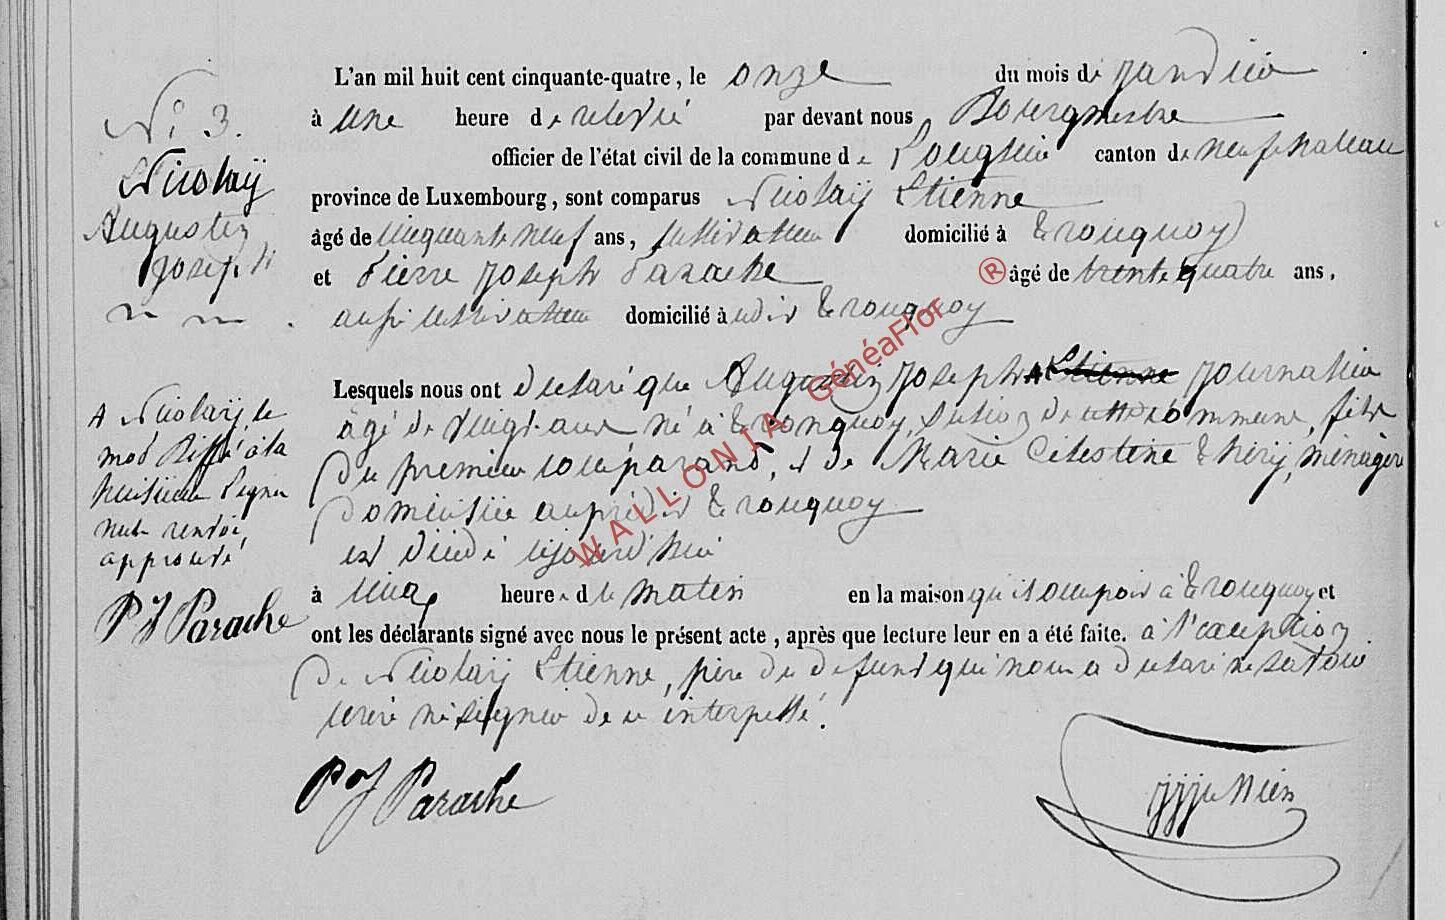 L'an mil huit cent cinquante-quatre, le onze du mois de janvier
N° 3.
à une heure de relevé par devant nous Bourgmestre
officier de l'état civil de la commune de canton de neufchateau
Nicolaÿ
province de Luxembourg, sont comparus Nicolaÿ Etienne
Augustin
âgé de cinquante neuf ans, cultivateur domicilié à Tronquoy
Joseph
et Pierre Joseph Parache âgé de trente quatre ans,
aussi cultivateur domicilié à udit Tronquoy
Lesquels nous ont declaré que Augustin Joseph A Etienne journalier
âgé de vingt ans, né à Tronquoy, section de cette commune, fils
du premier comparant, et de Marie Célestine Thiry, ménagère
domiciliée audit Tronquoy
est décédé aujourd'hui
à cinq heures du matin en la maison qu'il occupoit à Tronquoy et
ont les déclarants signé avec nous le présent acte, après que lecture leur en a été faite. à l'exception
de Nicolaÿ Etienne, père du défunt qui nous a declaré ne savoir
écrire ni signer de ce interpellé.
A Nicolaÿ, le
mot biffé à la
huitième ligne
nul renvoi,
approuvé
PJ Parache
PJ Parache
WALLONIA GénéaFlor ®